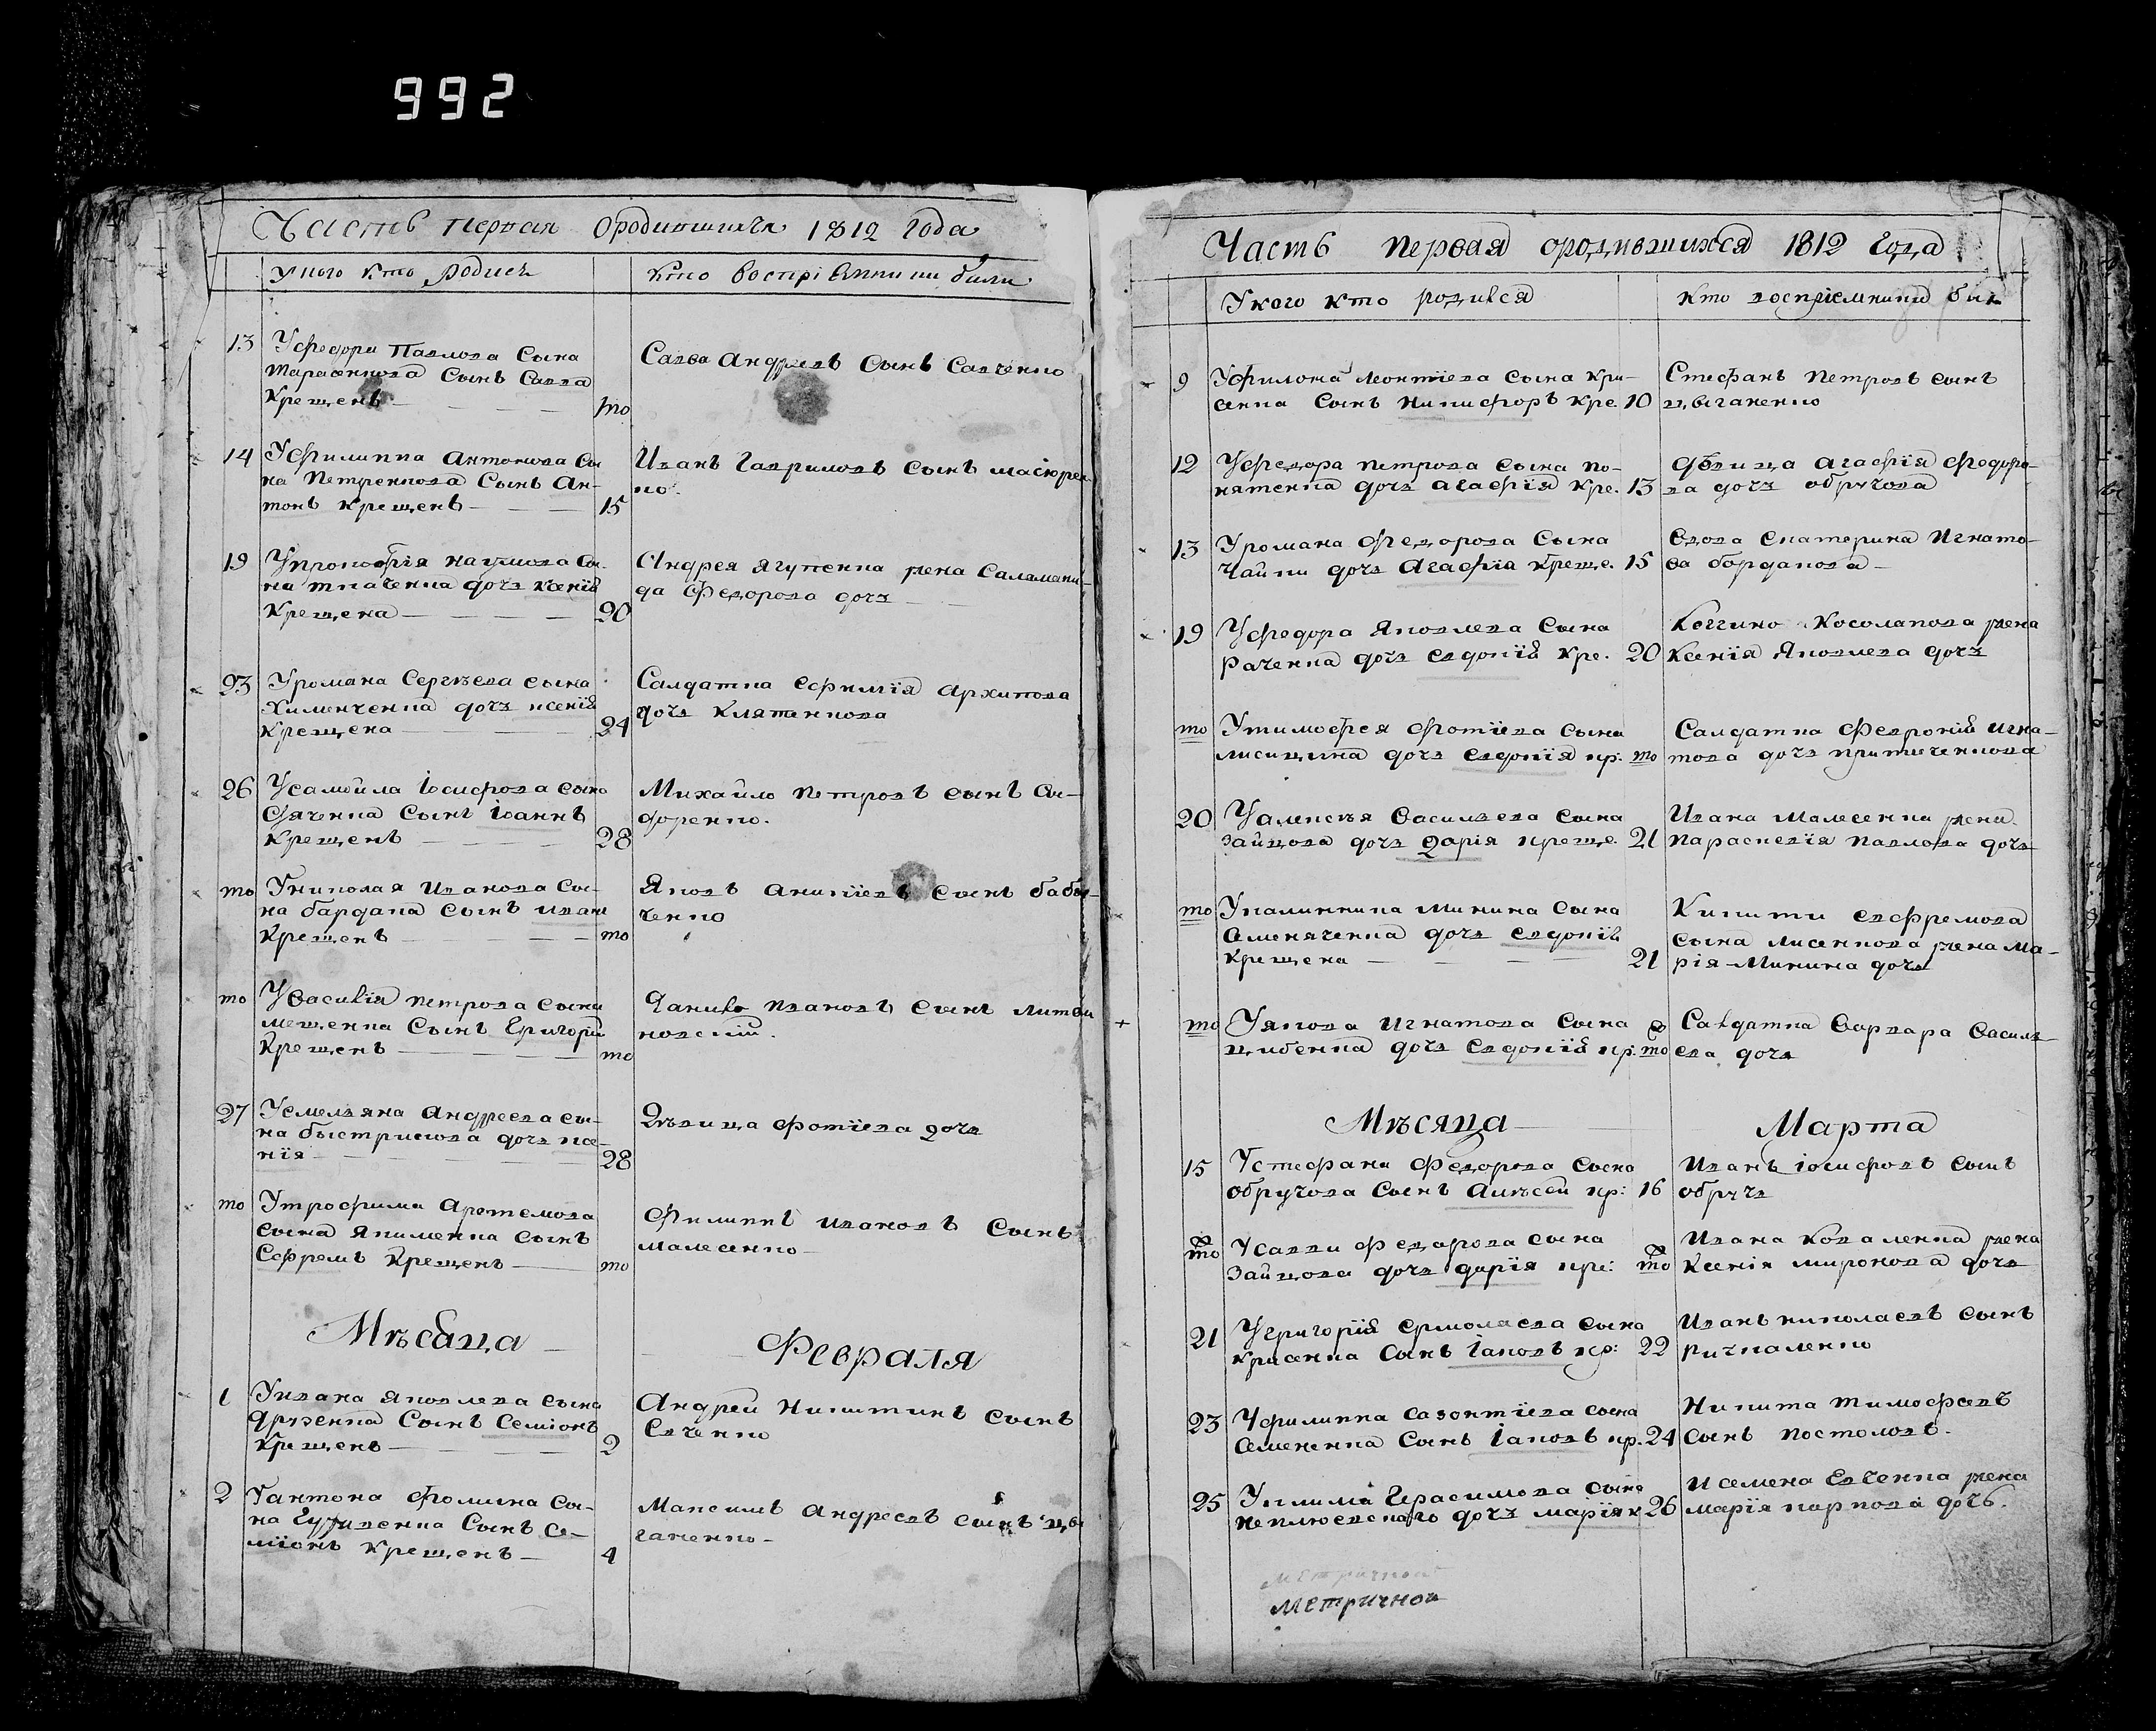 992
Часть первая ородившихся 1812 года
У кого кто родися
кто восприемники были
13 У федора Павлова сына
тарасенкова сынъ савва
крещенъ — то
Савва Андреевъ сынъ савченко
14 У филиппа антонова сы
на Петренкова сынъ ан-
тонъ крещенъ — 15
Иванъ гавриловъ сынъ
ко.
19 У прокофія наумова сы-
на ткаченка дочъ ксенія
крещена — 20
Андрея Ягупенка жена Саламани-
да федорова дочъ
23 У романа Сергѣева сына
Хименченка дочъ ксенія
крещена — 24
Салдатка Ефимія архипова
дочъ клятенкова
26 У самойла Іосифова сына
Дяченка сынъ іоаннъ
крещенъ 28
Михайло петровъ сынъ Си-
доренко.
то У николая иванова сы-
на бардака сынъ иванъ
крещенъ — то
Яковъ аникіевъ сынъ
ченко
то У Василія петрова сына
мещенка сынъ Григорій
крещенъ — то
Данило ивановъ сынъ литви
новскій.
27 У емельяна андреева сы-
на быстрикова дочъ ксе-
нія — 28
Дѣвица фотіева дочъ
то У трофима артемова
сына якименка сынъ
Ефремъ крещенъ — то
Филиппъ ивановъ сынъ
малесенко —
Мѣсяца — Февраля
1 У ивана яковлева сына
друзенка сынъ Семіонъ
крещенъ — 2
Андрей Никитинъ сынъ
Евченко
2 У антона фомина сы-
на сынъ Се-
міонъ крещенъ — 4
Максимъ андреевъ сынъ цы
ганенко —
Часть первая ородившихся 1812 года
У кого кто родився
кто восприемники был
9 У филона леонтіева сына кри-
сенка сынъ никифоръ кре. 10
Стефанъ петровъ сынъ
цыганенко
12 У федора петрова сына по-
нятенка дочъ агафія кре. 13
Дѣвица агафія федоро-
ва дочъ обручова
13 У романа федорова сына
Чайки дочъ агафія креще. 15
Вдова Екатерина игнато-
ва бордакова —
19 У федора яковлева сына
раченка дочъ евдокія кре. 20
Косолапова жена
ксенія Яковлева дочъ
то У тимофея фотіева сына
лисицина дочъ евдокія кр: то
Салдатка февронія игна-
това дочъ
20 У алексѣя васильева сына
зайцова дочъ Дарія креще. 21
Ивана малесенка жена
параскевія павлова дочъ
то У калинника минина сына
Семеняченка дочъ евдокія
крещена — 21
Никити евфремова
сына лисенкова жена ма-
рія минина дочъ
то У якова игнатова сына
цибенка дочъ евдокія кр: то
Салдатка варвара василь
ева дочъ
Мѣсяца — Марта
15 У стефана федорова сына
обручова сынъ алексѣй кр: 16
иванъ іосифовъ сынъ
обручъ
то У саввы федорова сына
зайцова дочъ дарія кре: то
Ивана коваленка жена
ксенія миронова дочъ
21 У григорія ермолаева сына
крисенка сынъ іаковъ кр: 22
иванъ николаевъ сынъ
ричкаленко
23 У филиппа созонтіева сына
Семененка сынъ іаковъ кр. 24
никита тимофеевъ
сынъ постоловъ.
25 У клима герасимова сына
неплюевского дочъ марія к 26
и семена евченка жена
марія карпова дочъ.
метричной
метричной